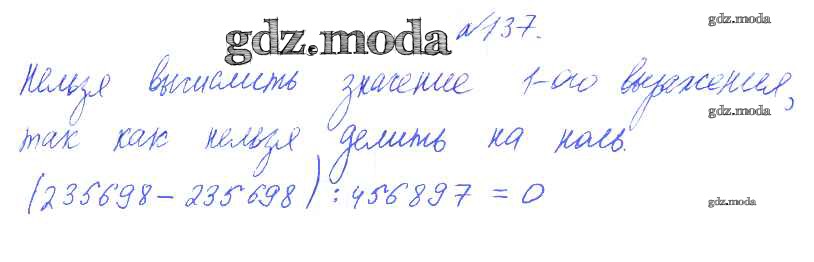 gdz.moda №137. gdz.moda
Нельзя вычислить значение 1-ого выражения,
gdz.moda
так как нельзя делить на ноль.
(235698 - 235698) : 456897 = 0
gdz.moda